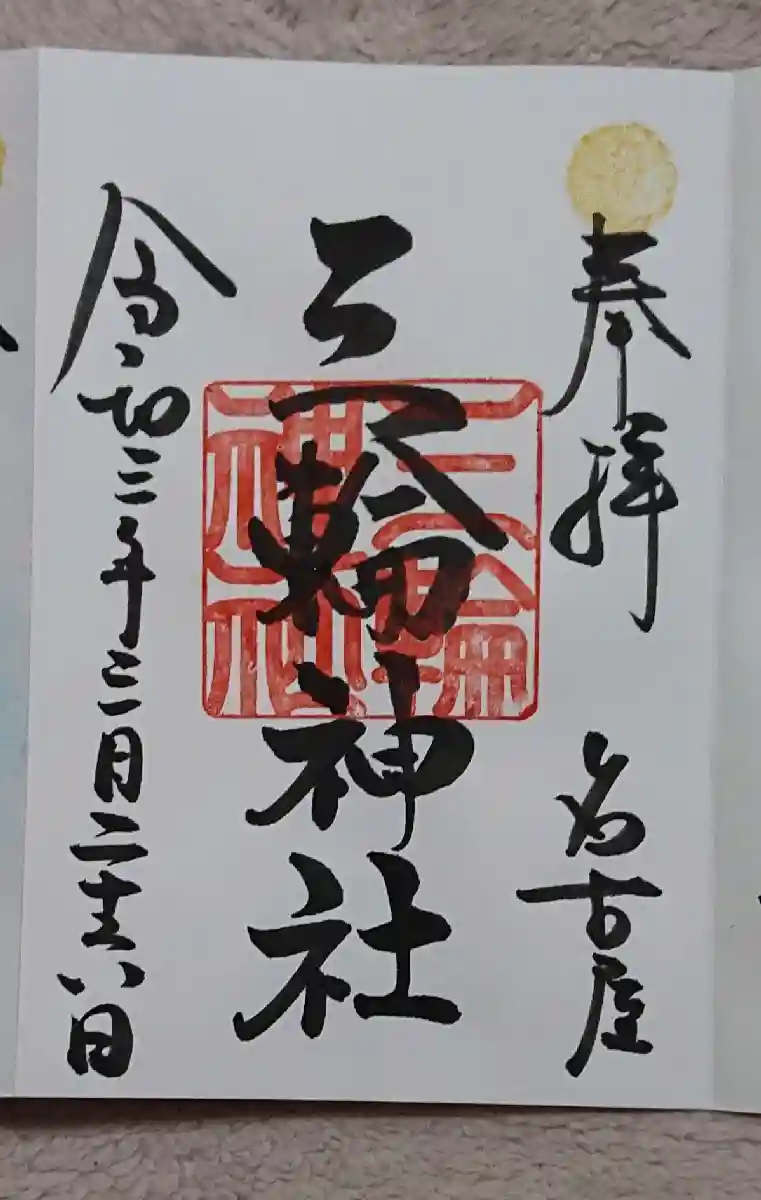 奉拝
名古屋
三輪神社
三輪
神社
令和三年三月二十六日